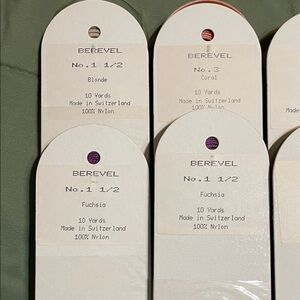 BEREVEL
No.1 1/2
Blonde
10 Yards
Made in Switzerland
100% Nylon
BEREVEL
No.3
Coral
10 Yards
Made in Switzerland
100% Nylon
BEREVEL
No.1 1/2
Fuchsia
10 Yards
Made in Switzerland
100% Nylon
BEREVEL
No.1 1/2
Fuchsia
10 Yards
Made in Switzerland
100% Nylon